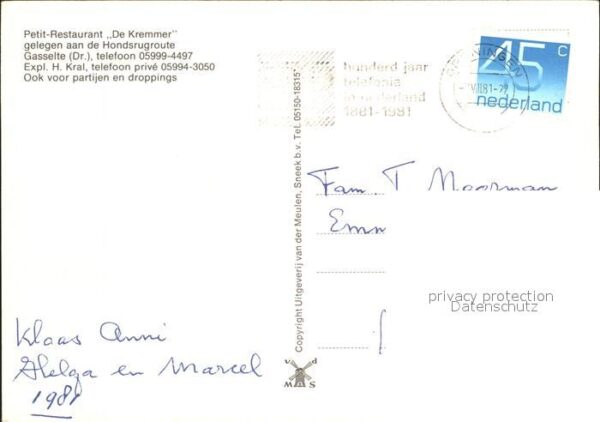 Petit-Restaurant „De Kremmer"
gelegen aan de Hondsrugroute
Gasselte (Dr.), telefoon 05999-4497
Expl. H. Kral, telefoon privé 05994-3050
Ook voor partijen en droppings
honderd jaar
telefonie
in nederland
1881-1981
GRONINGEN
45 c
nederland
Copyright Uitgeverij van der Meulen, Sneek b.v. Tel. 05150-18315*
Fam. T Moorman
Emm
privacy protection
Datenschutz
Klaas Anni
Helga en Marcel
1981
v d
W S M